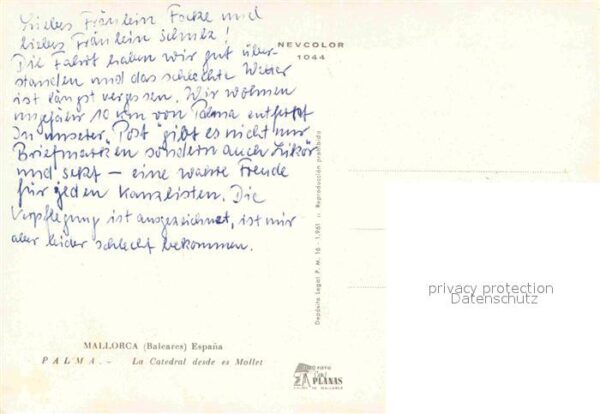 Liebes Fräulein Focke und
liebes Fräulein Schulz!
Die Fahrt haben wir gut über-
standen und das schlechte Wetter
ist längst vergessen. Wir wohnen
ungefähr 10 km von Palma entfernt
In unserer "Post" gibt es nicht nur
Briefmarken sondern auch Likör
und Sekt – eine wahre Freude
für jeden Kanzlisten. Die
Verpflegung ist ausgezeichnet, ist mir
aber leider schlecht bekommen.
NEVCOLOR
1044
Depósito Legal P. M. 16 - 1.961 :: Reproducción prohibida
privacy protection
Datenschutz
MALLORCA (Baleares) España
PALMA.- La Catedral desde es Mollet
FOTO
PLANAS